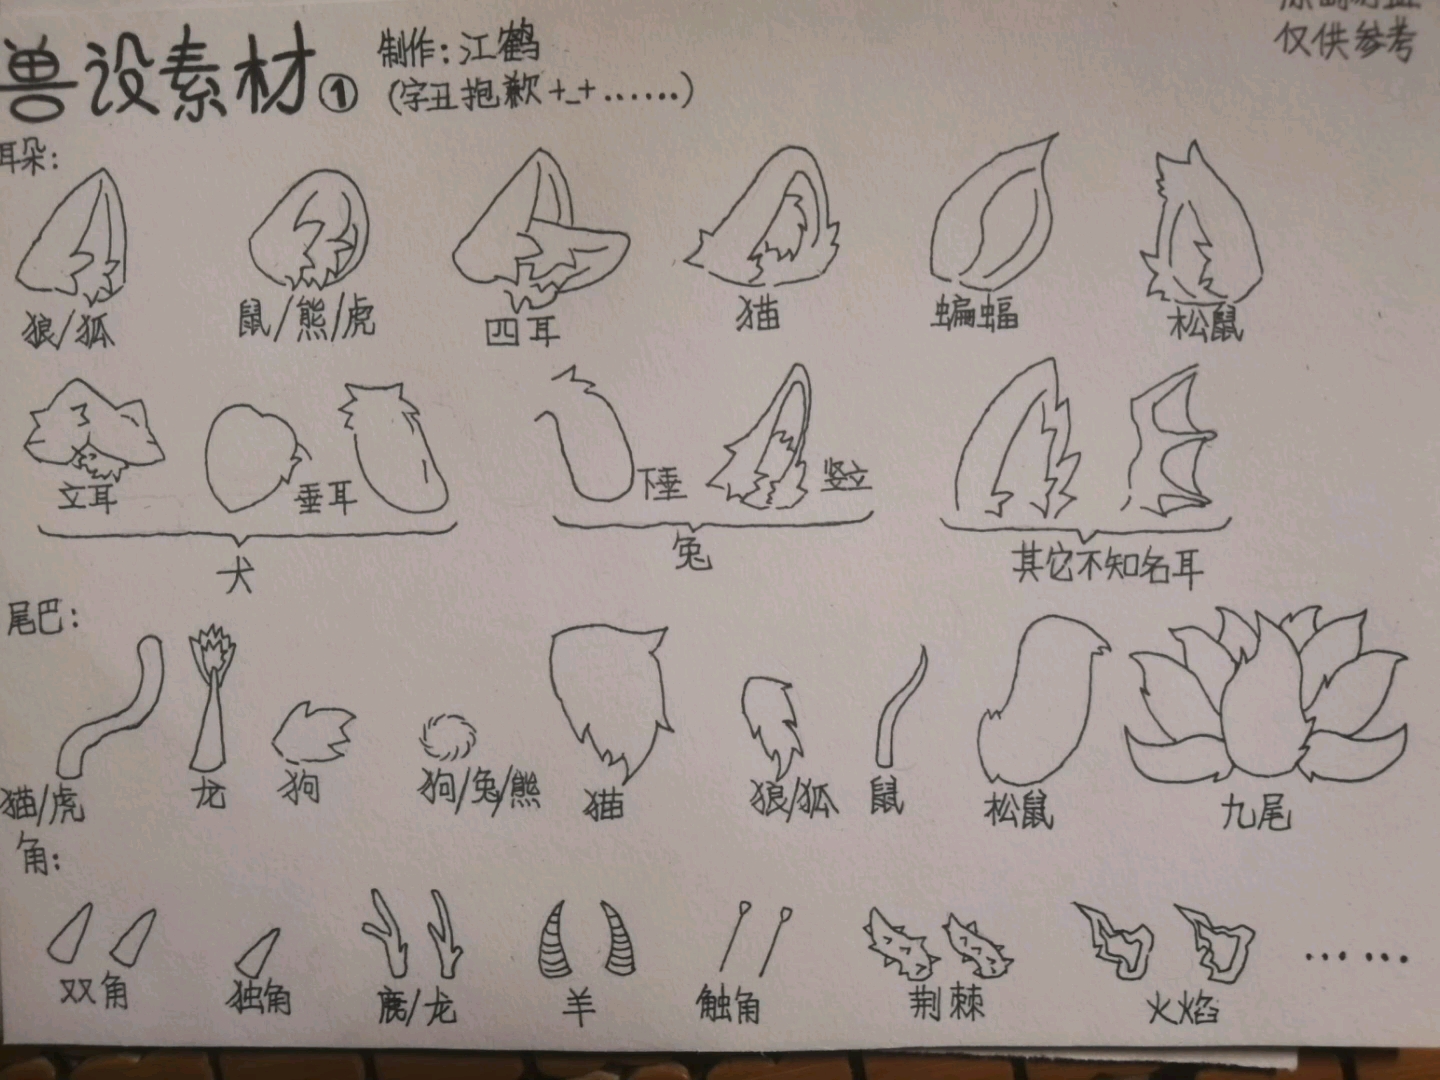 兽设素材①
制作：江鹤
(字丑抱歉+_+……)
仅供参考
耳朵：
狼/狐 鼠/熊/虎 四耳 猫 蝙蝠 松鼠
立耳 垂耳 下垂 竖立
犬 兔 其它不知名耳
尾巴：
猫/虎 龙 狗 狗/兔/熊 猫 狼/狐 鼠 松鼠 九尾
角：
双角 独角 鹿/龙 羊 触角 荆棘 火焰 ……